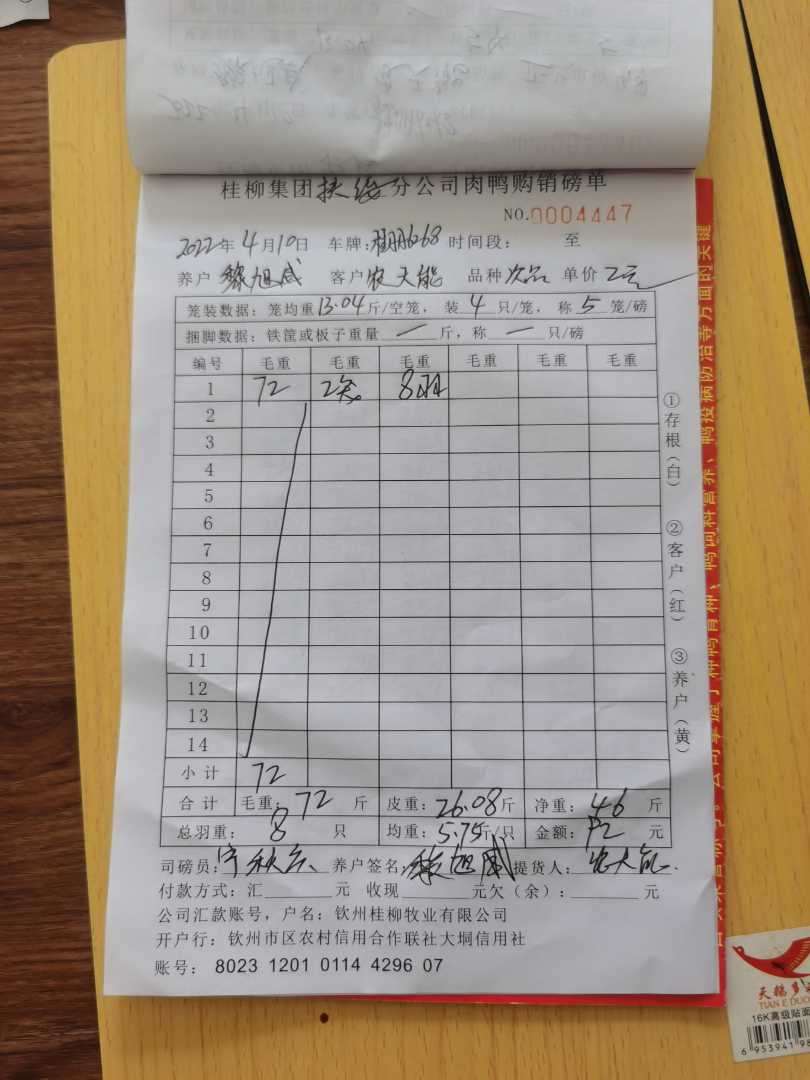 桂柳集团扶绥分公司肉鸭购销磅单
NO.0004447
2022年4月10日 车牌: 6268 时间段: 至
养户 黎旭威 客户 农天能 品种 次品 单价 2元
笼装数据: 笼均重13.04斤/空笼, 装4只/笼, 称5笼/磅
捆脚数据: 铁筐或板子重量 — 斤, 称 — 只/磅
编号 毛重 毛重 毛重 毛重 毛重 毛重
1 72 2笼 8羽
2
3
4
5
6
7
8
9
10
11
12
13
14
小计 72
合计 毛重: 72 斤 皮重: 26.08斤 净重: 46 斤
总羽重: 8 只 均重: 5.75斤/只 金额: 92 元
司磅员: 养户签名: 黎旭威 提货人: 农天能
付款方式: 汇 元 收现 元欠(余): 元
公司汇款账号, 户名: 钦州桂柳牧业有限公司
开户行: 钦州市区农村信用合作联社大垌信用社
账号: 8023 1201 0114 4296 07
①存根(白) ②客户(红) ③养户(黄)
鸭疫病防治等方面的关键
TIAN E DUO
16K高级贴面
6 953941 98